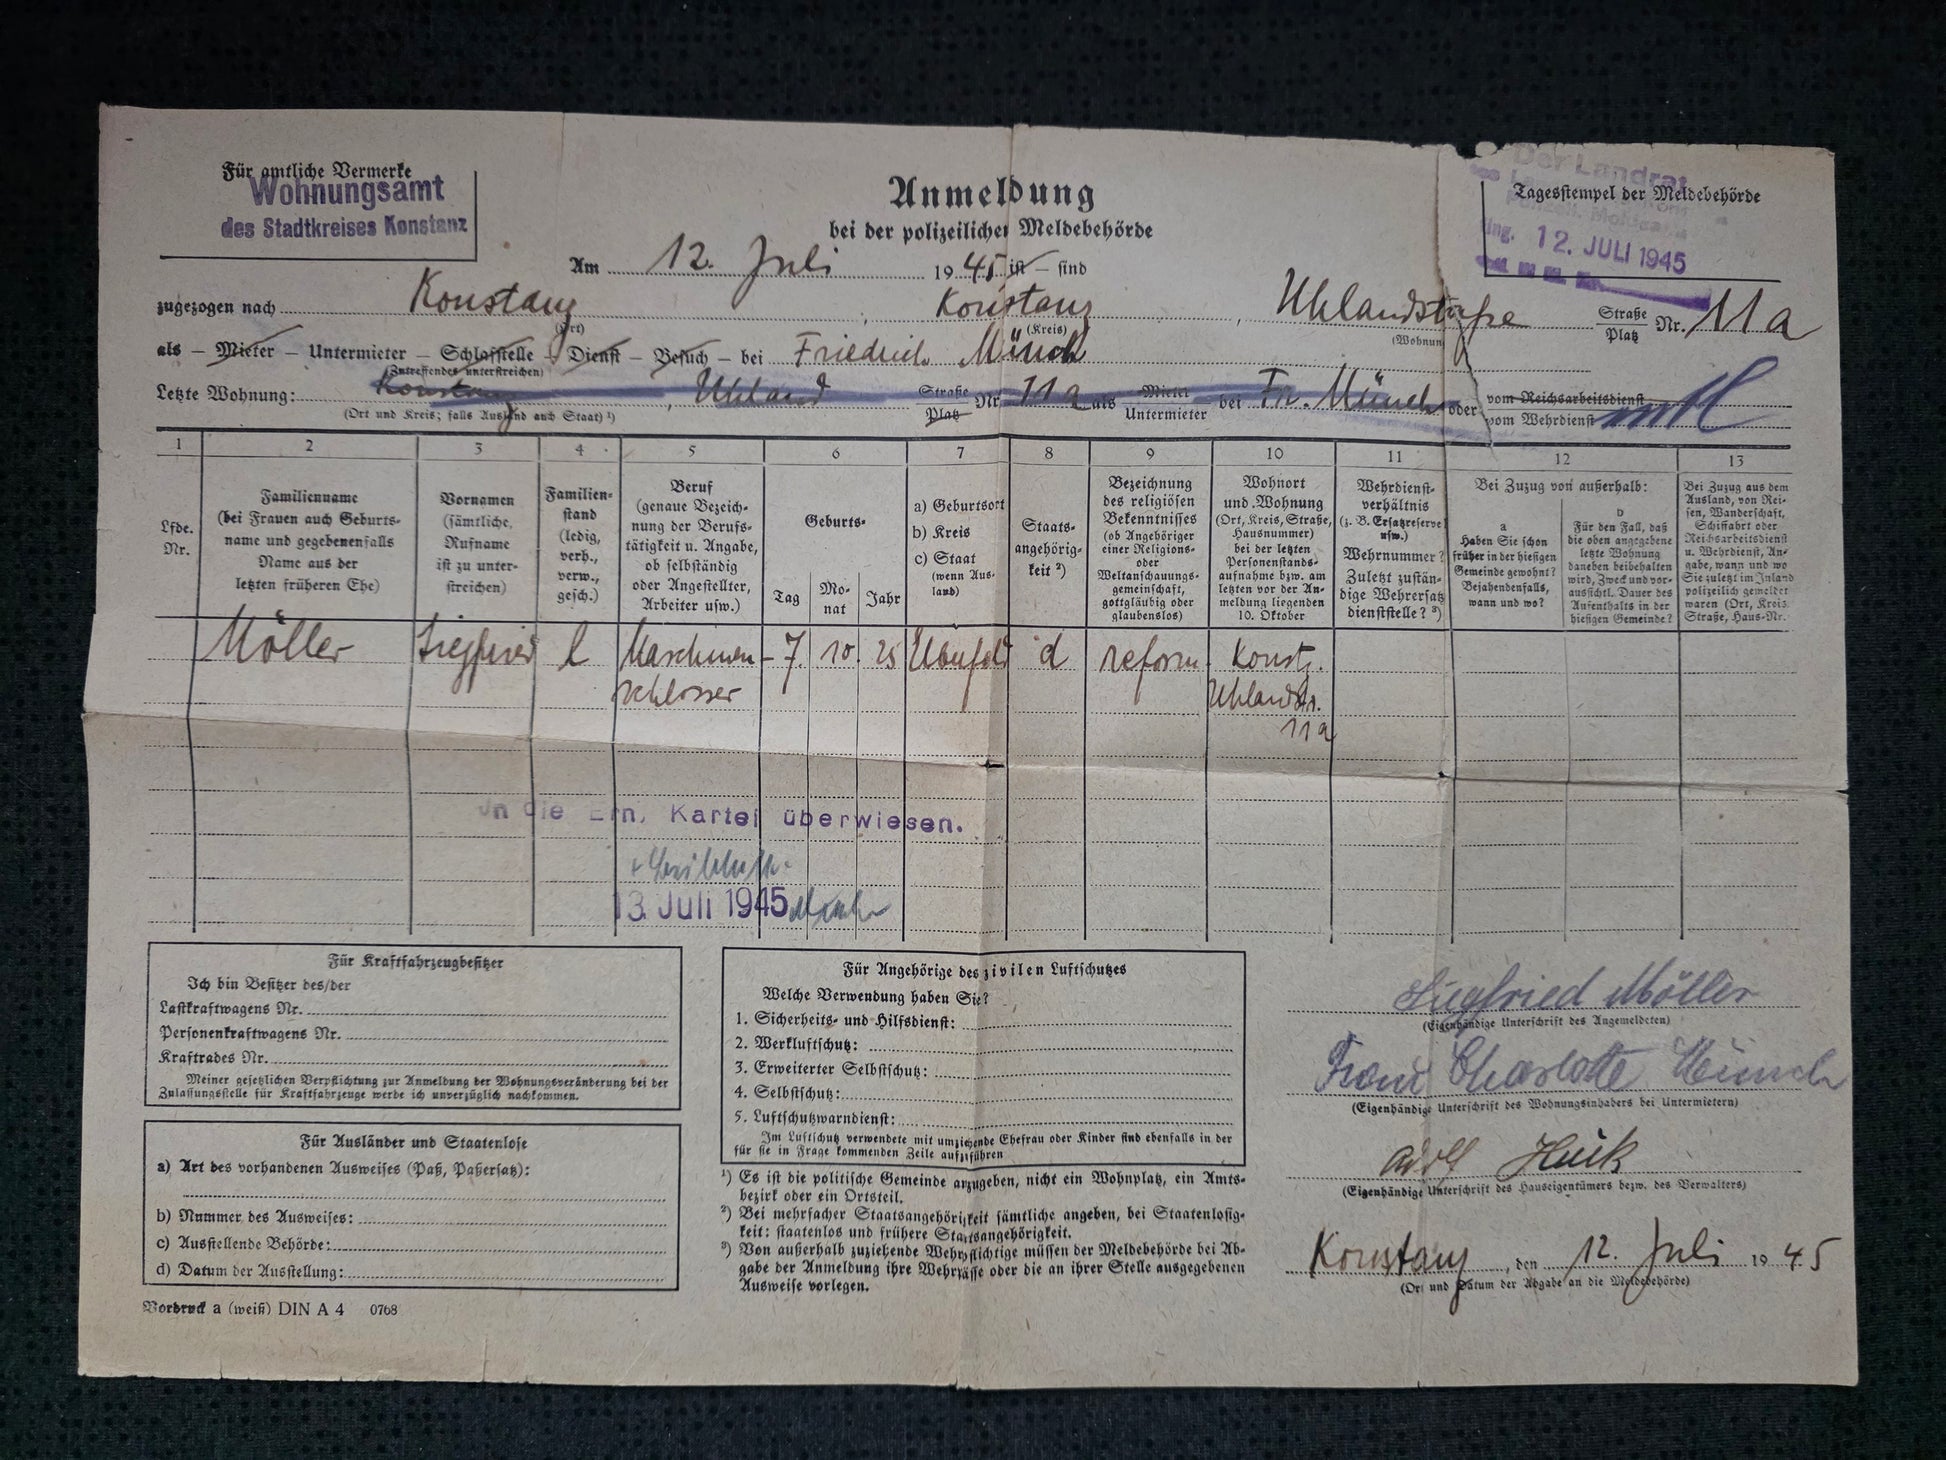 Für amtliche Vermerke
Wohnungsamt
des Stadtkreises Konstanz
Anmeldung
bei der polizeilichen Meldebehörde
Der Landrat
Tagesstempel der Meldebehörde
Eing. 12. JULI 1945
Am 12. Juli 1945 ist — sind
zugezogen nach Konstanz, Konstanz, Uhlandstraße Straße Platz Nr. 11a
(Ort) (Kreis) (Wohnung)
als — Mieter — Untermieter — Schlafstelle — Dienst — Besuch — bei Friedrich Münch
(Zutreffendes unterstreichen)
Letzte Wohnung: Konstanz, Uhland Straße Platz Nr. 11a als Mieter Untermieter bei Fr. Münch oder vom Reichsarbeitsdienst vom Wehrdienst
(Ort und Kreis; falls Ausland auch Staat) ¹)
1 2 3 4 5 6 7 8 9 10 11 12 13
Lfde. Nr.
Familienname (bei Frauen auch Geburtsname und gegebenenfalls Name aus der letzten früheren Ehe)
Vornamen (sämtliche, Rufname ist zu unterstreichen)
Familienstand (ledig, verh., verw., gesch.)
Beruf (genaue Bezeichnung der Berufstätigkeit u. Angabe, ob selbständig oder Angestellter, Arbeiter usw.)
Geburts-
Tag Monat Jahr
a) Geburtsort
b) Kreis
c) Staat (wenn Ausland)
Staatsangehörigkeit ²)
Bezeichnung des religiösen Bekenntnisses (ob Angehöriger einer Religions- oder Weltanschauungsgemeinschaft, gottgläubig oder glaubenslos)
Wohnort und Wohnung (Ort, Kreis, Straße, Hausnummer) bei der letzten Personenstandsaufnahme bzw. am letzten vor der Anmeldung liegenden 10. Oktober
Wehrdienstverhältnis (z. B. Ersatzreserve usw.) Wehrnummer? Zuletzt zuständige Wehrersatzdienststelle? ³)
Bei Zuzug von außerhalb:
a Haben Sie schon früher in der hiesigen Gemeinde gewohnt? Bejahendenfalls, wann und wo?
b Für den Fall, daß die oben angegebene letzte Wohnung daneben beibehalten wird, Zweck und voraussichtl. Dauer des Aufenthalts in der hiesigen Gemeinde?
Bei Zuzug aus dem Ausland, von Reisen, Wanderschaft, Schiffahrt oder Reichsarbeitsdienst u. Wehrdienst, Angabe, wann und wo Sie zuletzt im Inland polizeilich gemeldet waren (Ort, Kreis, Straße, Haus-Nr.
Möller Siegfried l Maschinen- 7. 10. 25 Elberfeld d reform. Konstz.
schlosser Uhlandstr.
11a
In die Ern. Kartei überwiesen.
13. Juli 1945
Für Kraftfahrzeugbesitzer
Ich bin Besitzer des/der
Lastkraftwagens Nr.
Personenkraftwagens Nr.
Kraftrades Nr.
Meiner gesetzlichen Verpflichtung zur Anmeldung der Wohnungsveränderung bei der
Zulassungsstelle für Kraftfahrzeuge werde ich unverzüglich nachkommen.
Für Ausländer und Staatenlose
a) Art des vorhandenen Ausweises (Paß, Paßersatz):
b) Nummer des Ausweises:
c) Ausstellende Behörde:
d) Datum der Ausstellung:
Vordruck a (weiß) DIN A 4 0768
Für Angehörige des zivilen Luftschutzes
Welche Verwendung haben Sie?
1. Sicherheits- und Hilfsdienst:
2. Werkluftschutz:
3. Erweiterter Selbstschutz:
4. Selbstschutz:
5. Luftschutzwarndienst:
Im Luftschutz verwendete mit umziehende Ehefrau oder Kinder sind ebenfalls in der
für sie in Frage kommenden Zeile aufzuführen
¹) Es ist die politische Gemeinde anzugeben, nicht ein Wohnplatz, ein Amts-
bezirk oder ein Ortsteil.
²) Bei mehrfacher Staatsangehörigkeit sämtliche angeben, bei Staatenlosig-
keit: staatenlos und frühere Staatsangehörigkeit.
³) Von außerhalb zuziehende Wehrpflichtige müssen der Meldebehörde bei Ab-
gabe der Anmeldung ihre Wehrpässe oder die an ihrer Stelle ausgegebenen
Ausweise vorlegen.
Siegfried Möller
(Eigenhändige Unterschrift des Angemeldeten)
Frau Charlotte Münch
(Eigenhändige Unterschrift des Wohnungsinhabers bei Untermietern)
Adolf
(Eigenhändige Unterschrift des Hauseigentümers bezw. des Verwalters)
Konstanz, den 12. Juli 1945
(Ort und Datum der Abgabe an die Meldebehörde)